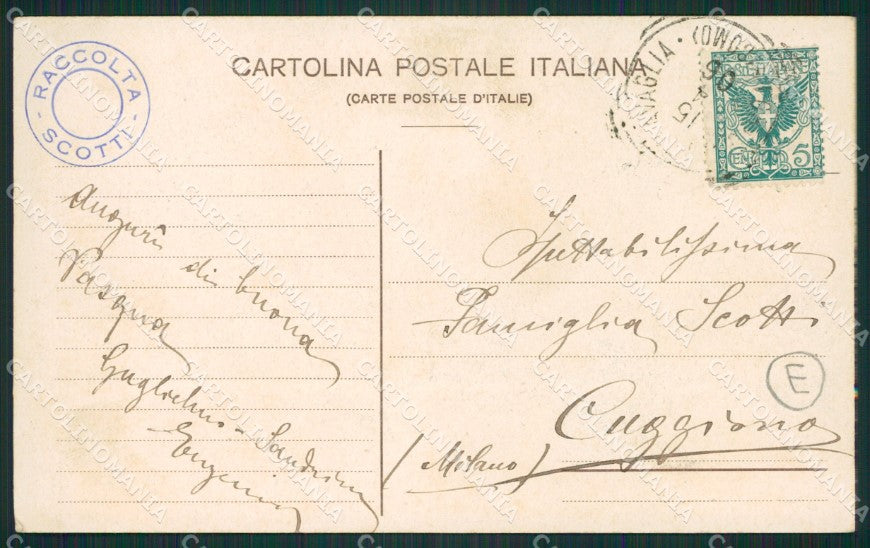 RACCOLTA
SCOTTI
CARTOLINA POSTALE ITALIANA
(CARTE POSTALE D'ITALIE)
(DUOMO)
15
5
Auguri
di buona
Pasqua
Guglielmo - Sandrina
Eugenia
Spettabilissima
Famiglia Scotti
Cuggiono
(Milano)
E
CARTOLINOMANIA